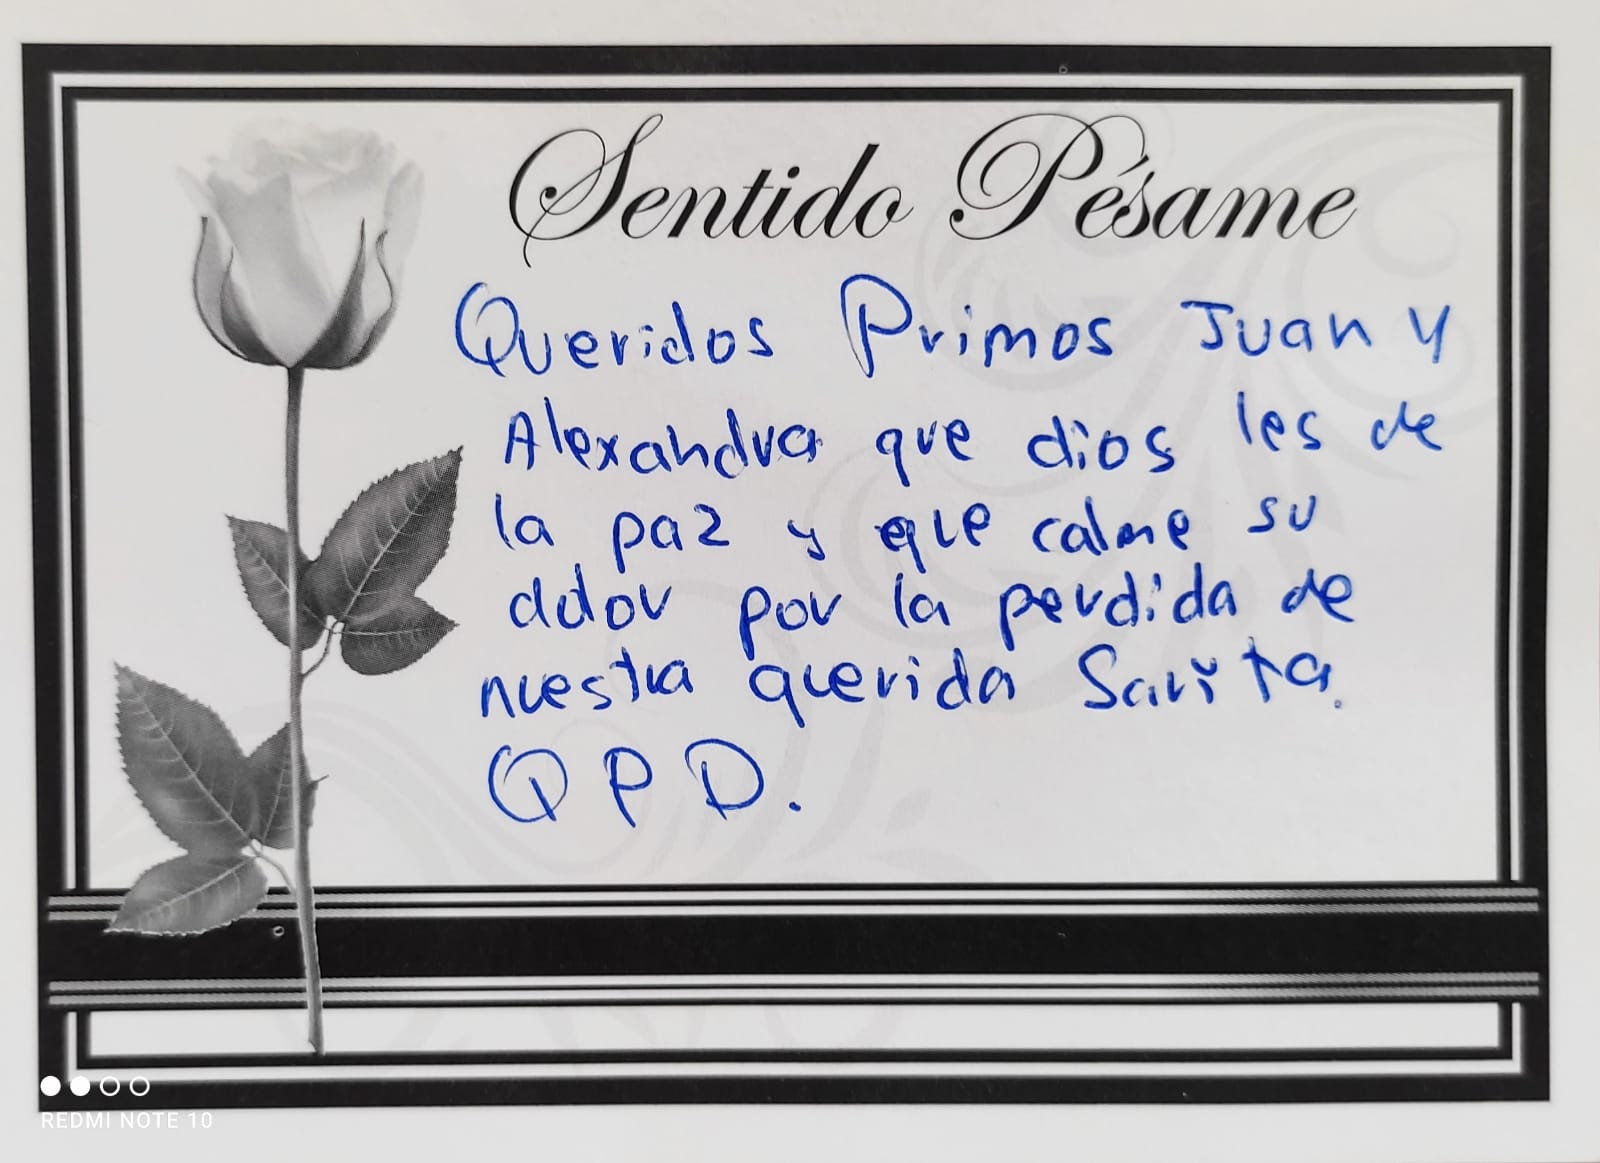 Sentido Pésame
Queridos Primos Juan y
Alexandra que dios les de
la paz y que calme su
dolor por la perdida de
nuestra querida Sarita.
Q P D.
REDMI NOTE 10